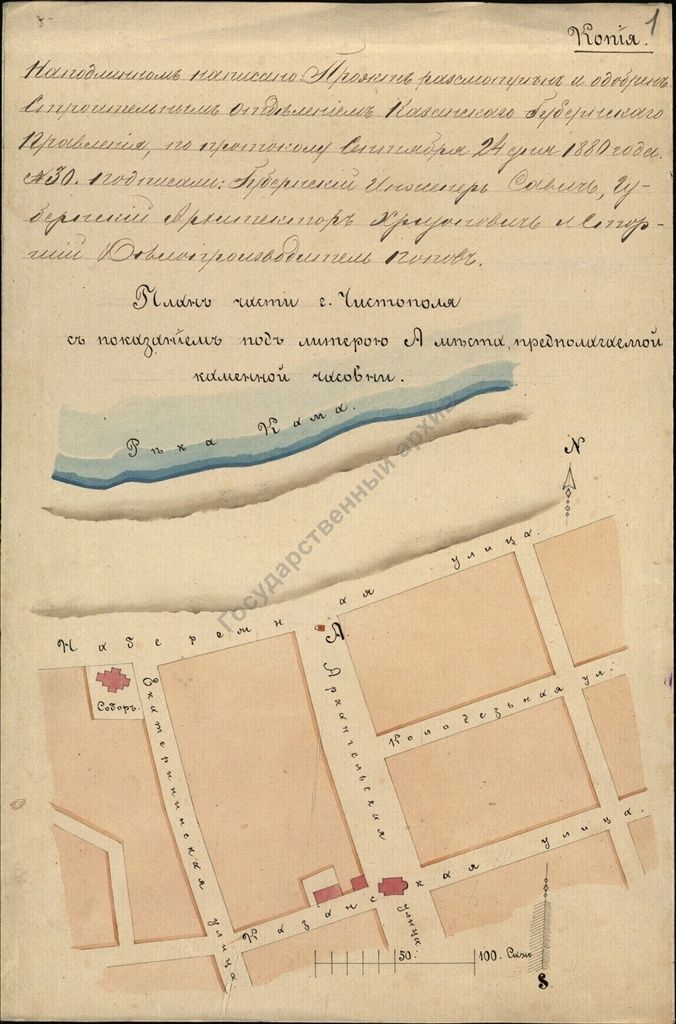 1
Копія.
На подлинномъ написано: Проэктъ разсмотрѣнъ и одобренъ
Строительнымъ Отдѣленіемъ Казанскаго Губернскаго
Правленія, по протоколу Сентября 24 дня 1880 года
№30. подписали: Губернскій Инженеръ Гу-
бернскій Архитекторъ и Стар-
шій Дѣлопроизводитель Поповъ.
Планъ части г. Чистополя
съ показаніемъ подъ литерою А мѣста, предполагаемой
каменной часовни.
Рѣка Кама.
N
Набережная улица.
А.
Соборъ.
Екатерининская улица.
Архангельская улица
Колодезьная ул:
Казанская улица.
50 100. Саж
S
Государственный архив